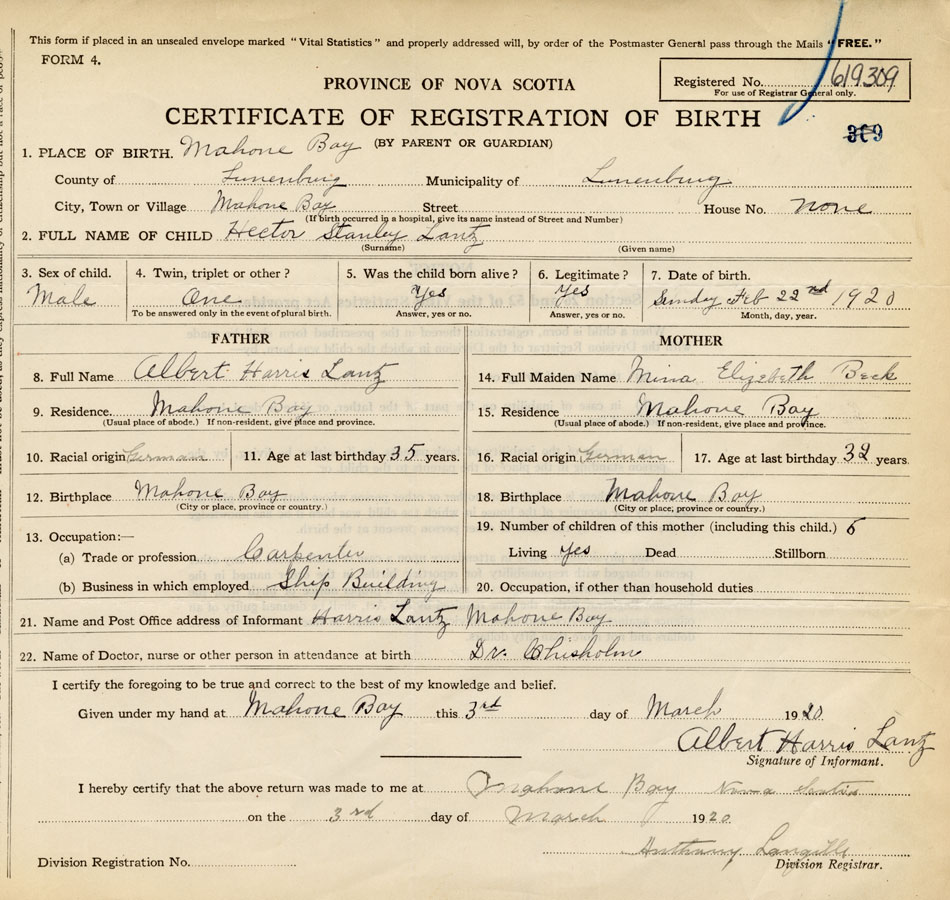 This form if placed in an unsealed envelope marked "Vital Statistics" and properly addressed will, by order of the Postmaster General pass through the Mails "FREE."
FORM 4.
Registered No. 619309
For use of Registrar General only.
PROVINCE OF NOVA SCOTIA
CERTIFICATE OF REGISTRATION OF BIRTH
309
(BY PARENT OR GUARDIAN)
1. PLACE OF BIRTH. Mahone Bay
County of Lunenburg Municipality of Lunenburg
City, Town or Village Mahone Bay Street House No. none
(If birth occurred in a hospital, give its name instead of Street and Number)
2. FULL NAME OF CHILD Hector Stanley Lantz
(Surname) (Given name)
3. Sex of child. 4. Twin, triplet or other? 5. Was the child born alive? 6. Legitimate? 7. Date of birth.
Male One Yes Yes Sunday Feb 22nd 1920
To be answered only in the event of plural birth. Answer, yes or no. Answer, yes or no. Month, day, year.
FATHER
8. Full Name Albert Harris Lantz
9. Residence. Mahone Bay
(Usual place of abode.) If non-resident, give place and province.
10. Racial origin German 11. Age at last birthday 35 years.
12. Birthplace Mahone Bay
(City or place, province or country.)
13. Occupation:—
(a) Trade or profession Carpenter
(b) Business in which employed Ship Building
MOTHER
14. Full Maiden Name Mina Elizebeth Beck
15. Residence Mahone Bay
(Usual place of abode.) If non-resident, give place and province.
16. Racial origin German 17. Age at last birthday 32 years.
18. Birthplace Mahone Bay
(City or place, province or country.)
19. Number of children of this mother (including this child.) 6
Living Yes Dead Stillborn
20. Occupation, if other than household duties
21. Name and Post Office address of Informant Harris Lantz Mahone Bay
22. Name of Doctor, nurse or other person in attendance at birth Dr. Chisholm
I certify the foregoing to be true and correct to the best of my knowledge and belief.
Given under my hand at Mahone Bay this 3rd day of March 1920
Albert Harris Lantz
Signature of Informant.
I hereby certify that the above return was made to me at Mahone Bay Nova Scotia
on the 3rd day of March 1920
Anthony Langille
Division Registrar.
Division Registration No.